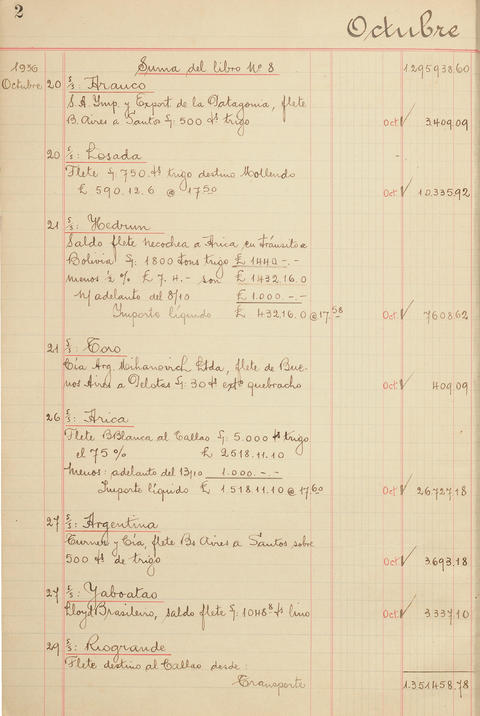 2
Octubre
1936 Suma del libro Nº 8 1.295.938.60
Octubre 20 s/s: Arauco
S.A. Imp. y Export de la Patagonia, flete
B. Aires a Santos s/: 500 ts trigo Oct. ✓ 3.409.09
20 s/s: Losada -
Flete s/: 750 ts trigo destino Mollendo
£ 590.12.6 @ 17.50 Oct ✓ 10.335.92
21 s/s: Hedrun
Saldo flete Necochea a Arica en tránsito a
Bolivia s/: 1800 tons trigo £ 1440.-.-
menos ½ % £ 7.4.- son £ 1432.16.0
n/ adelanto del 8/10 £ 1.000.-.-
Importe líquido £ 432.16.0 @ 17.58 Oct. ✓ 7608.62
21 s/s: Toro
Cía Arg. Mihanovich Ltda, flete de Bue-
nos Aires a Pelotas s/: 30 ts extº quebracho Oct. ✓ 409.09
26 s/s: Arica
Flete B Blanca al Callao s/: 5.000 ts trigo
el 75 % £ 2518.11.10
Menos: adelanto del 13/10 1.000.-.-
Importe líquido £ 1518.11.10 @ 17.60 Oct ✓ 26.727.18
27 s/s: Argentina
Turner y Cía, flete Bs Aires a Santos sobre
500 ts de trigo Oct ✓ 3.693.18
27 s/s: Jaboatao
Lloyd Brasileiro, saldo flete s/: 1048 ts lino Oct ✓ 3.337.10
29 s/s: Riogrande
Flete destino al Callao desde:
Transporte 1.351.458.78